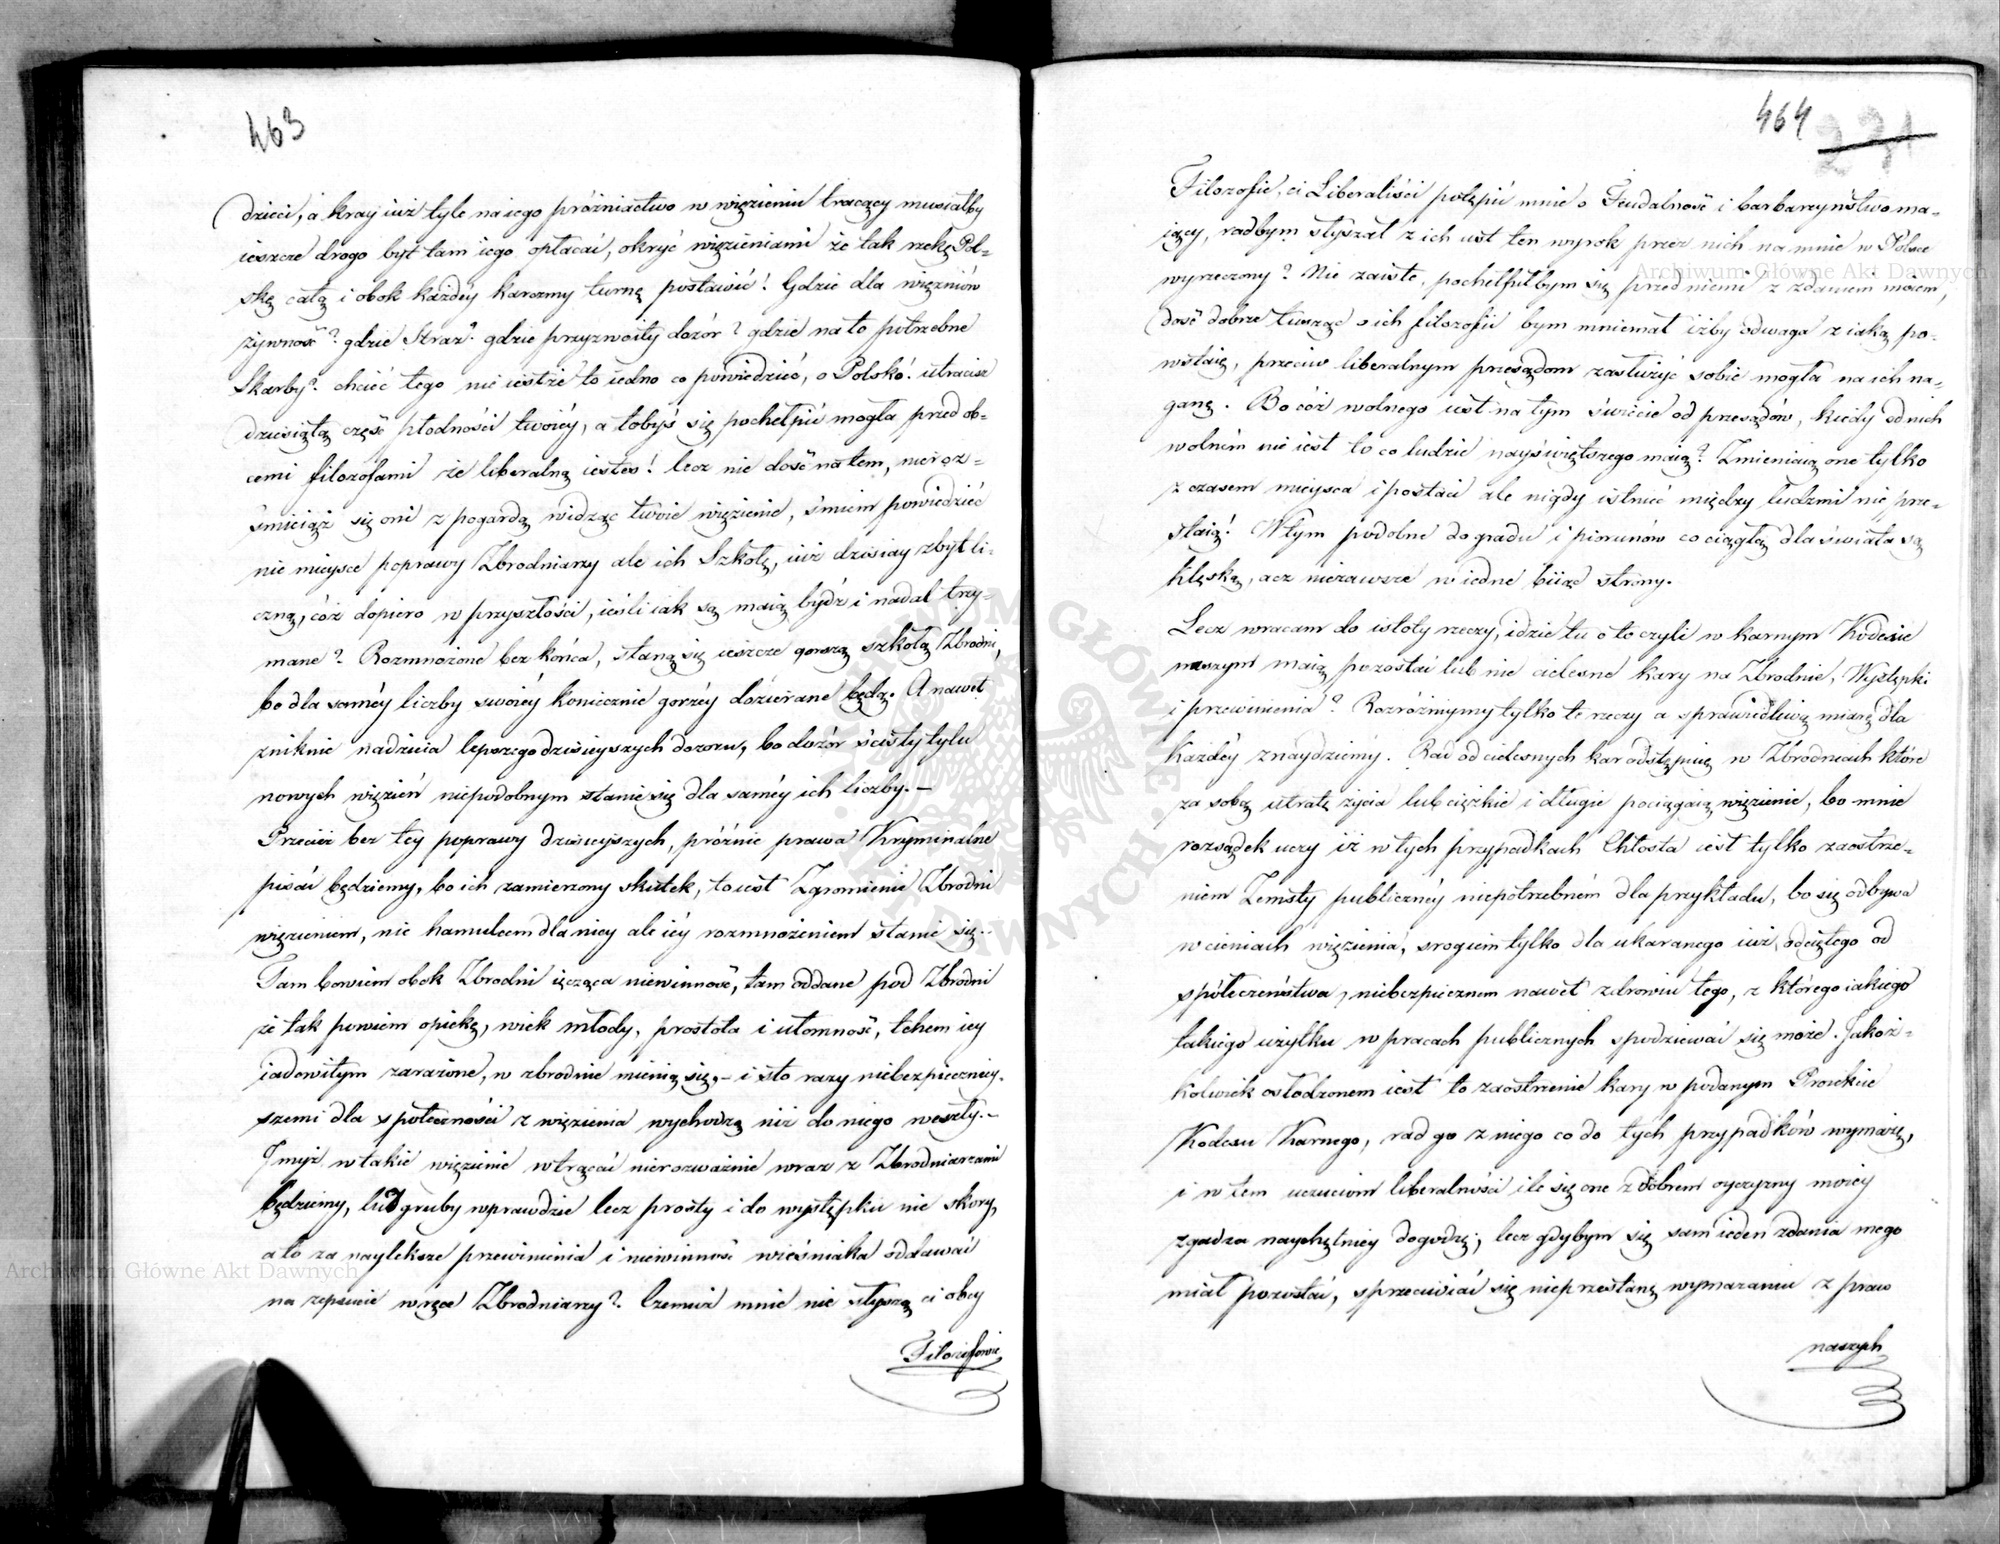 463
dzieci, a kray iuż tyle na iego próżniactwo w więzieniu tracący musiałby
ieszcze drogo byt tam iego opłacać, okryć więzieniami że tak rzekę Pol-
skę całą i obok każdey karczmy turmę postawić! Gdzie dla więźniów
żywność? gdzie straż? gdzie przyzwoity dozór? gdzie na to potrzebne
Skarby? chcieć tego nie iestże to iedno co powiedzieć, o Polsko! utracisz
dziesiątą część płodności twoiéy, a tobyś się pochełpić mogła przed ob-
cemi filozofami że liberalną iesteś! lecz nie dość na tem,
śmieiąż się oni z pogardą widząc twoie więzienie, śmiem powiedzieć
nie mieysce poprawy Zbrodniarzy ale ich Szkołę, iuż dzisiay zbyt li-
czną, cóż dopiero w przyszłości, ieśli iak są maią bydź i nadal trzy-
mane? Rozmnożone bez końca, staną się ieszcze gorszą szkołą Zbrodni,
bo dla saméy liczby swoiéy koniecznie gorzéy dozierane będą. A nawet
zniknie nadzieia lepszego dzisieyszych dozoru, bo dozór ścisły tylu
nowych więzień niepodobnym stanie się dla saméy ich liczby. –
Przecież bez tey poprawy dzisieyszych, próżnie prawa Kryminalne
pisać będziemy, bo ich zamierzony skutek, to iest Zgromienie Zbrodni
więzieniem, nie hamulcem dla niey ale iéy rozmnożeniem stanie się. -
Tam bowiem obok Zbrodni ięcząca niewinność, tam oddane pod Zbrodni
że tak powiem opiekę, wiek młody, prostota i ułomność, tchem iey
iadowitym zarażone, w zbrodnie mienią się, – i sto razy niebezpieczniey-
szemi dla społeczności z więzienia wychodzą niż do niego weszły. –
I myż w takie więzienie wtrącać nierozważnie wraz z Zbrodniarzami
będziemy, lud gruby wprawdzie lecz prosty i do występku nie skory,
a to za nayleksze przewinienia i niewinność wieśniaka oddawać
na zepsucie w ręce Zbrodniarzy? Czemuż mnie nie słyszą ci obcy
Filozofowie
464
271
Filozofie, ci Liberaliści potępić mnie o Feudalność i barbarzyństwo ma-
iący, radbym słyszał z ich ust ten wyrok przez nich na mnie w Polsce
wyrzeczony? Nie zaiste, pochełpiłbym się przed niemi z zdaniem moiem,
dość dobrze tusząc o ich filozofii bym mniemał iżby odwaga z iaką po-
wstaię, przeciw liberalnym przesądom zasłużyć sobie mogła na ich na-
ganę. Bo cóż wolnego iest na tym świecie od przesądów, kiedy od nich
wolném nie iest to co ludzie nayświętszego maią? Zmieniaią one tylko
z czasem mieysca i postaci ale nigdy istnieć między ludzmi nie prze-
staią! W tym podobne do gradu i piorunów co ciągłą dla świata są
klęską, acz niezawsze w iedne biiąc strony.
Lecz wracam do istoty rzeczy, idzie tu o to czyli w karnym Kodexie
naszym maią pozostać lub nie cielesne kary na Zbrodnie, Występki
i przewinienia? Rozróżniymy tylko te rzeczy a sprawiedliwą miarę dla
każdéy znaydziemy. Rad od cielesnych kar odstępuię w Zbrodniach które
za sobą utratę życia lub ciężkie i długie pociągaią więzienie, bo mnie
rozsądek uczy iż w tych przypadkach Chłosta iest tylko zaostrze-
niem Zemsty publicznéy niepotrzebném dla przykładu, bo się odbywa
w cieniach więzienia, srogiem tylko dla ukaranego iuż odciętego od
społeczeństwa, niebezpiecznem nawet zdrowiu tego, z którego iakiego
takiego użytku w pracach publicznych spodziewać się może. Jakoż-
kolwiek osłodzonem iest to zaostrzenie kary w podanym Proiekcie
Kodexu Karnego, rad go z niego co do tych przypadków wymażę,
i w tem uczuciom liberalności ile się one z dobrem oyczyzny moiey
zgadza naychętniey dogodzę; lecz gdybym się sam ieden zdania mego
miał pozostać, sprzeciwiać się nieprzestanę wymazaniu z praw
naszych
Archiwum Główne Akt Dawnych
Archiwum Główne Akt Dawnych